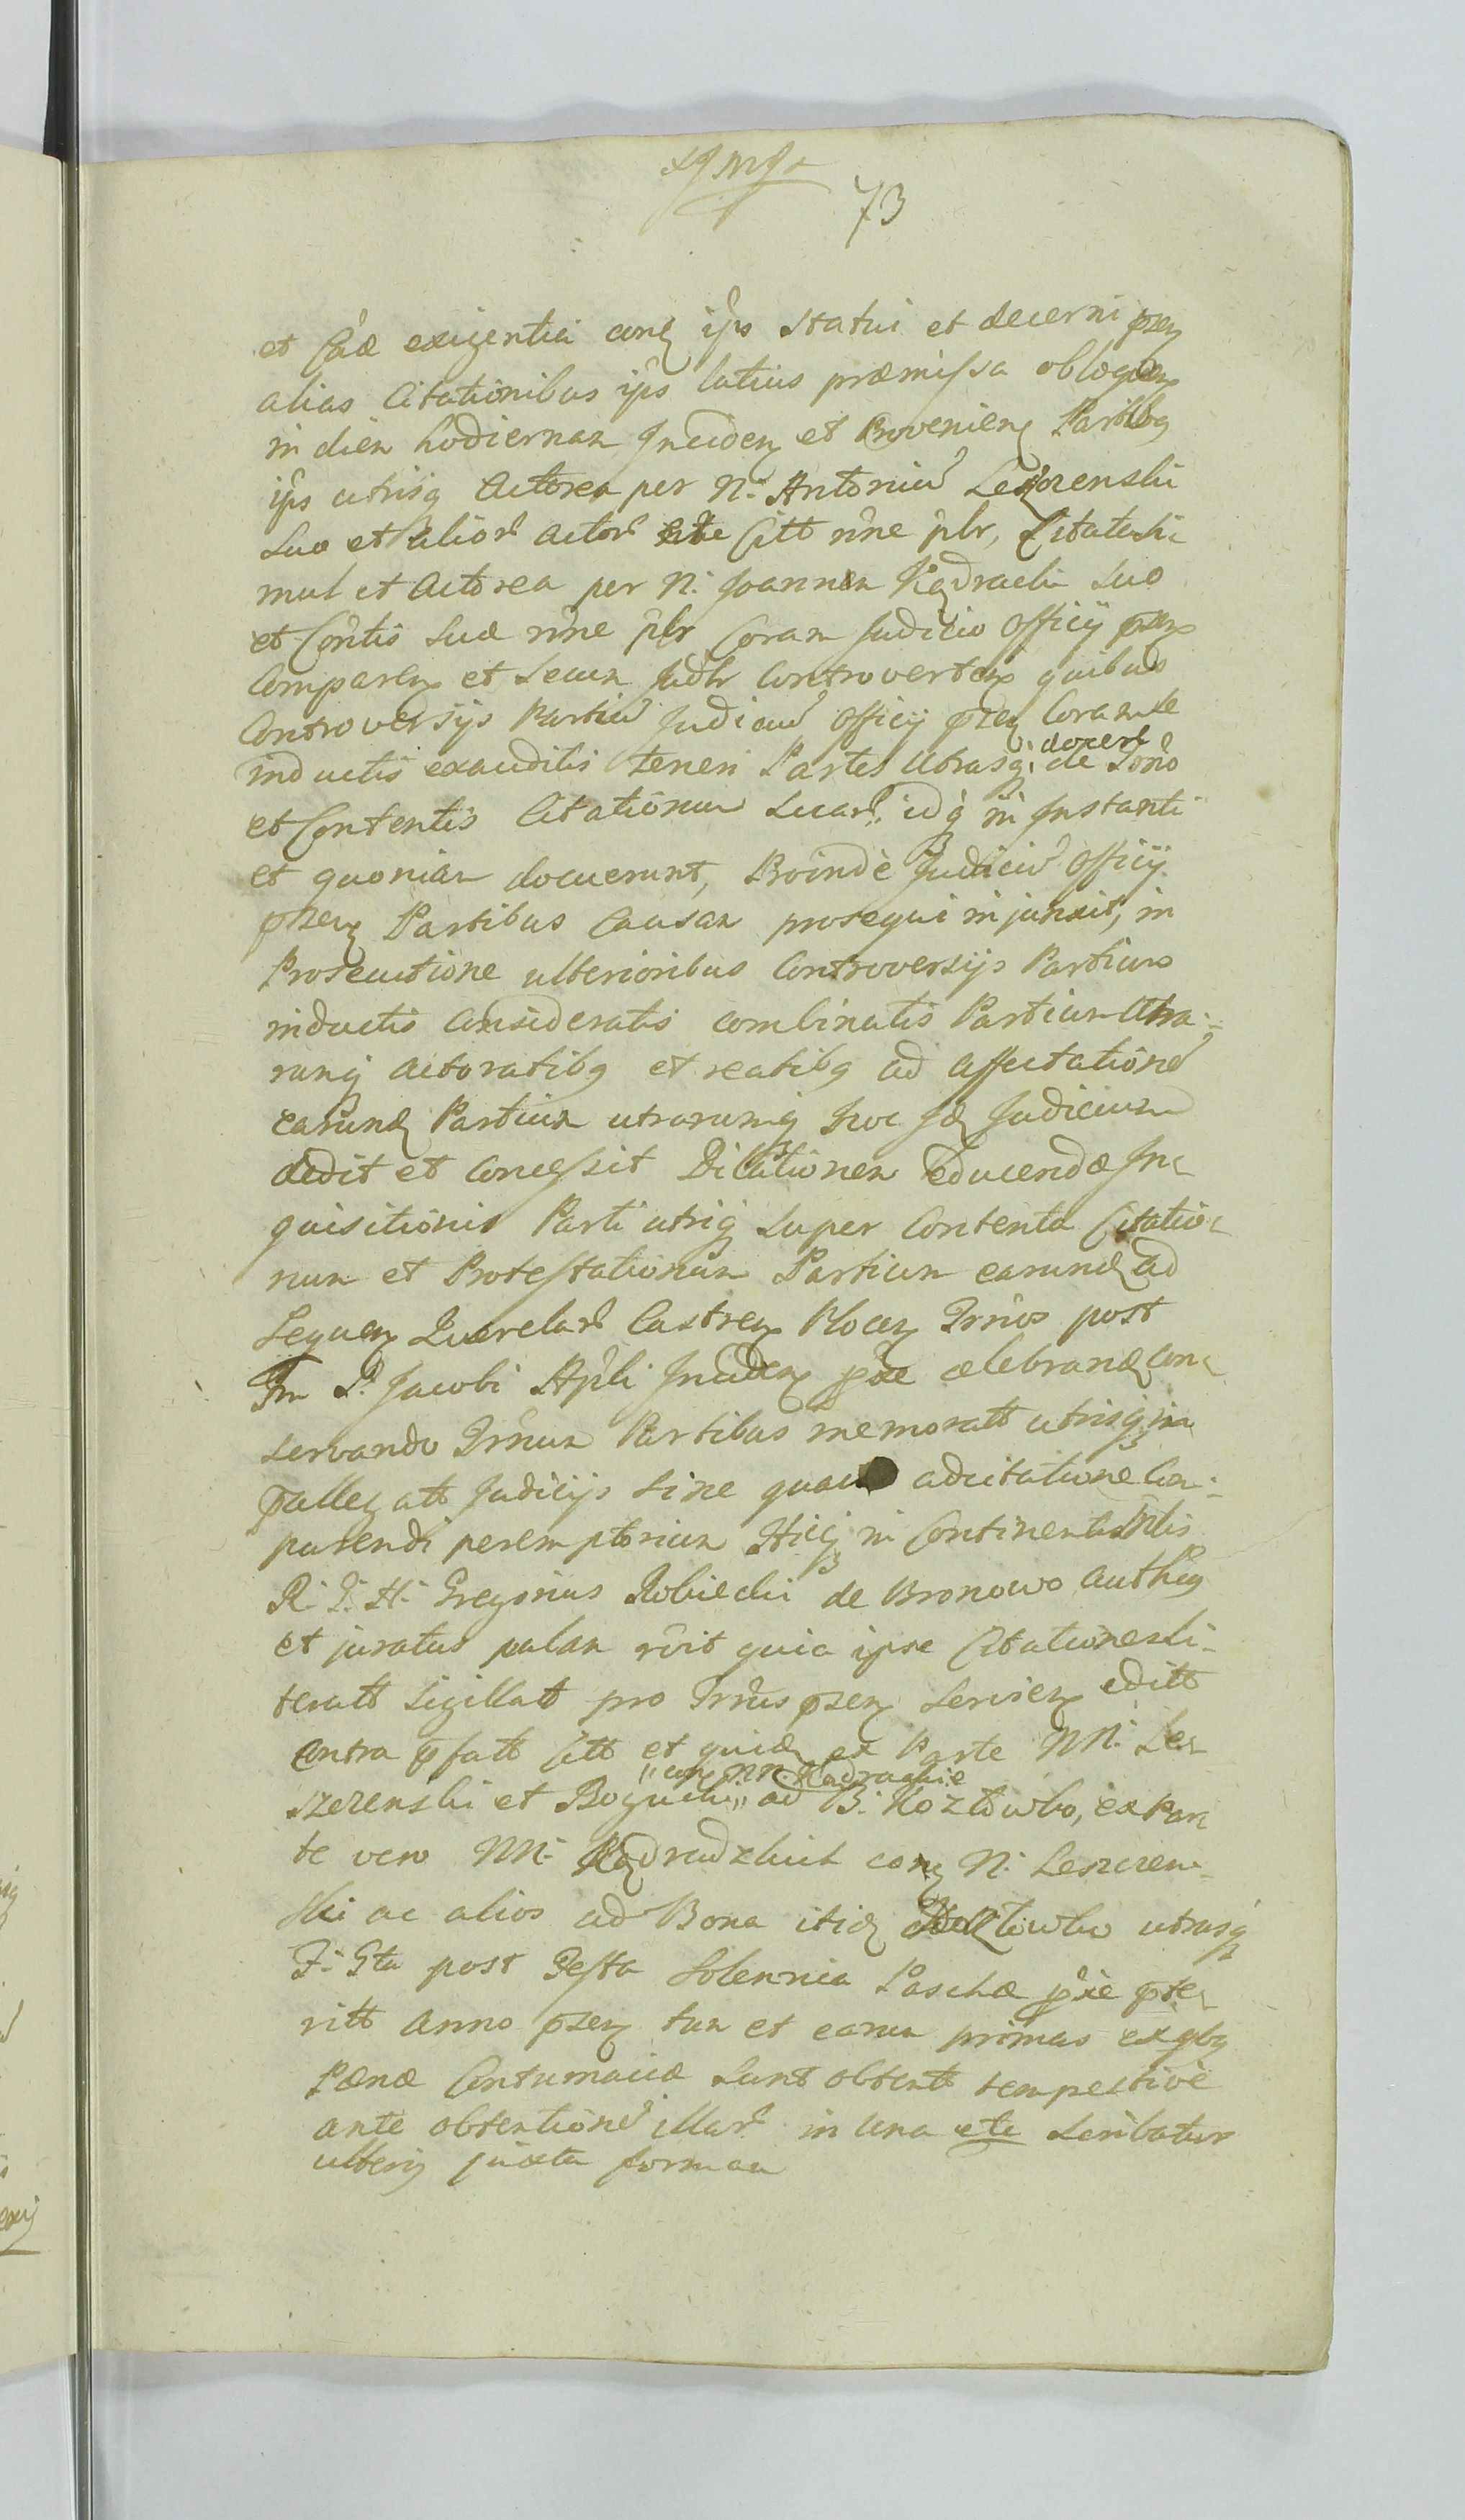 73
et Cae exigentia conq ips statui et decerni pzen
alias Citationibus ips latius præmissa obloquen
in diem hodiernam Inciden et Provenien Partibq
ips utrisq Actorea per N. Antoniu Leszczenski
suo et alior actor Citt nine plr, Citatesi
mul et Actorea per N. Joannem Kędracki suo
et Contis suæ nine plr Coram Judicio Officij pzen
Comparen et secum Judlr Controverten quibus
Controversijs Partiu Judiciu Officij pzen Coram se
inductis exauditis teneri Partes Utrasq docere de Tono
et Contentis Citationum suar idq in Instanti
et quoniam docuerunt, Proindè Judiciu Officij
pzen Partibus Causam prosequi injunxit, in
Prosecutione ulterioribus Controversijs Partium
inductis consideratis combinatis Partium Utra-
rumq actoratibq et reatibq ad affectatione
earund Partium utrarumq hoc Id Judicium
dedit et concessit Dilationem Educendæ In
quisitionis Parti utriq super Contenta Citatio
num et Protestationum Partium earund ad
sequen Querelar Castren Plocen Trnos post
Fm S. Jacobi Apli Inciden pxe celebrand con
servando Trnum Partibus memoratt utrisq in
pallegatt Judicijs sine quavis adcitatione Com-
parendi peremptorium Hicq in Continenti Mtlis
R. T. H. Gregorius Robiecki de Bronowo authen
et juratus palam rcvit quia ipse Citationes li-
teratt sigillatt pro Trnis pzen servien editt
contra pfatt Citt et quid ex Parte NN. Les
szczenski et Bogucki „con NN. Kadrackie„ ad B. Kozłowko, ex Par
te vero NN. Kędradzkich con N. Leszczen-
ski ac alios ad Bona itid Kozłowko utrasq
F. Gta post Festa Solennia Paschæ pxe pte
ritt Anno pzen tum et earum primas ex qbq
Pænæ Contumaciæ sunt obtentt tempestivè
ante obtentione illar in una etc scribatur
ulteriq juxta formam